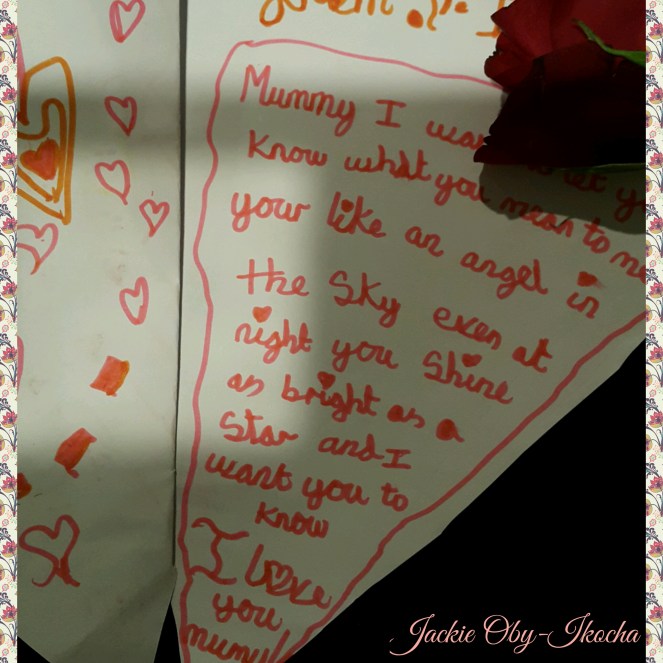 Mummy I want to let you
know what you mean to me
your like an angel in
the Sky even at
night you Shine
as bright as a
Star and I
want you to
know
I love
you
mumy!
Jackie Oby-Ikocha